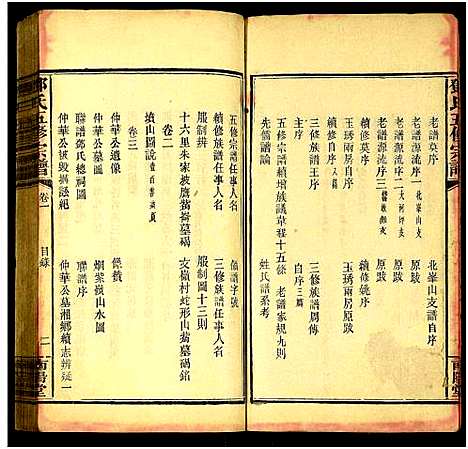 鄧氏五修宗譜
老譜莫序
北峯山支譜自序
老譜源流序一 北峯山支
原跋
老譜源流序二 大河坪支
原跋
老譜源流序三
原跋
續修莫序
續修姚序
玉琇兩房原序
玉琇兩房原跋
續修譜序
三修族譜周傳
三修族譜王序
自序三篇
五修宗譜續增族議章程十五條 老譜家規九則
先儒譜論
姓氏譜系考
五修宗譜任事人名
續修族譜任事人名
三修族譜任事人名
服制辨
服制圖十三則
卷二
十六里朱家坡
墓碣
支嶺村蛇形山
墓碣銘
墳山圖說
卷三
仲華公遺像
像贊
仲華公墓圖
山水圖
聯譜鄧氏總祠圖
聯譜序
仲華公
仲華公墓湘鄉續志辨疑一
鄧氏五修宗譜
卷一
目錄
二
南陽堂
南陽堂